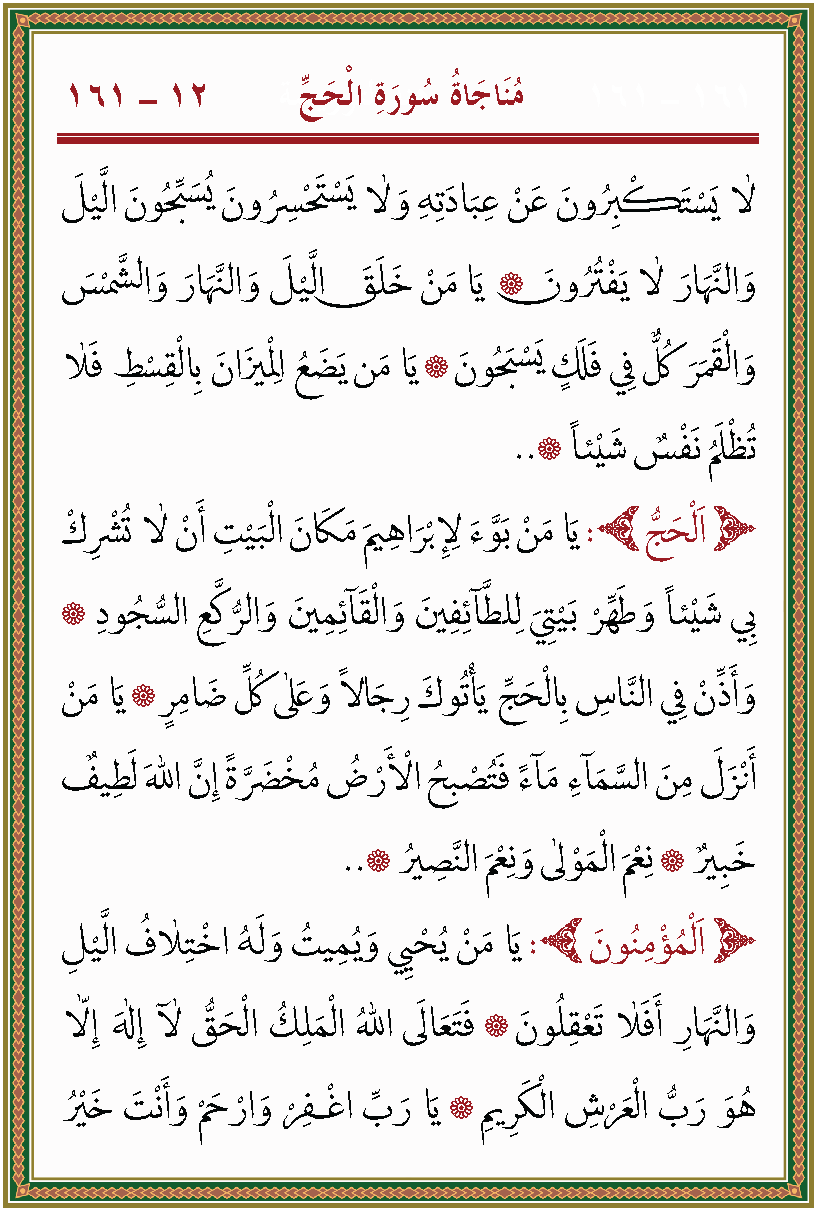 مُنَاجَاةُ سُورَةِ الْحَجِّ ١٢ – ١٦١
لَا يَسْتَكْبِرُونَ عَنْ عِبَادَتِهِ وَلَا يَسْتَحْسِرُونَ يُسَبِّحُونَ الَّيْلَ
وَالنَّهَارَ لَا يَفْتُرُونَ ۞ يَا مَنْ خَلَقَ الَّيْلَ وَالنَّهَارَ وَالشَّمْسَ
وَالْقَمَرَ كُلٌّ فِي فَلَكٍ يَسْبَحُونَ ۞ يَا مَن يَضَعُ الْمِيزَانَ بِالْقِسْطِ فَلَا
تُظْلَمُ نَفْسٌ شَيْئاً ۞..
﴿اَلْحَجُّ﴾: يَا مَنْ بَوَّءَ لِإِبْرَاهِيمَ مَكَانَ الْبَيْتِ أَنْ لَا تُشْرِكْ
بِي شَيْئاً وَطَهِّرْ بَيْتِيَ لِلطَّآئِفِينَ وَالْقَآئِمِينَ وَالرُّكَّعِ السُّجُودِ ۞
وَأَذِّنْ فِي النَّاسِ بِالْحَجِّ يَأْتُوكَ رِجَالاً وَعَلَى كُلِّ ضَامِرٍ ۞ يَا مَنْ
أَنْزَلَ مِنَ السَّمَآءِ مَآءً فَتُصْبِحُ الْأَرْضُ مُخْضَرَّةً إِنَّ اللهَ لَطِيفٌ
خَبِيرٌ ۞ نِعْمَ الْمَوْلَى وَنِعْمَ النَّصِيرُ ۞..
﴿اَلْمُؤْمِنُونَ﴾: يَا مَنْ يُحْيِي وَيُمِيتُ وَلَهُ اخْتِلَافُ الَّيْلِ
وَالنَّهَارِ أَفَلَا تَعْقِلُونَ ۞ فَتَعَالَى اللهُ الْمَلِكُ الْحَقُّ لَآ إِلَهَ إِلَّا
هُوَ رَبُّ الْعَرْشِ الْكَرِيمِ ۞ يَا رَبِّ اغْفِرْ وَارْحَمْ وَأَنْتَ خَيْرُ